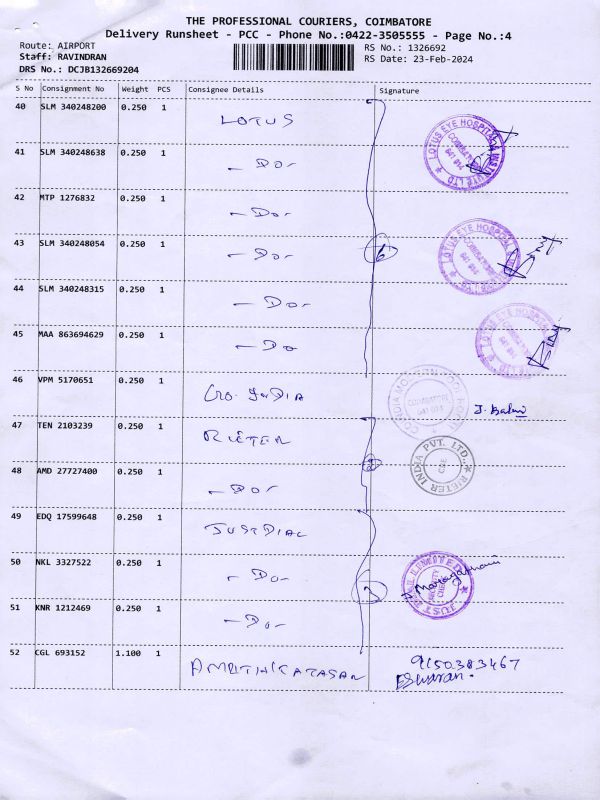 THE PROFESSIONAL COURIERS, COIMBATORE
Delivery Runsheet - PCC - Phone No.:0422-3505555 - Page No.:4
Route: AIRPORT
RS No.: 1326692
Staff: RAVINDRAN
RS Date: 23-Feb-2024
DRS No.: DCJB132669204
S No Consignment No Weight PCS Consignee Details Signature
40 SLM 340248200 0.250 1 LOTUS
LOTUS EYE HOSPITAL INSTITUTE LTD
41 SLM 340248638 0.250 1 - Do -
42 MTP 1276832 0.250 1 - Do -
43 SLM 340248054 0.250 1 - Do - 6
LOTUS EYE HOSPITAL
44 SLM 340248315 0.250 1 - Do -
45 MAA 863694629 0.250 1 - Do
LOTUS EYE HOSPITAL
46 VPM 5170651 0.250 1 CRO. INDIA
COIMBATORE
47 TEN 2103239 0.250 1 RIETER
RIETER INDIA PVT. LTD.
CBE
48 AMD 27727400 0.250 1 - Do -
49 EDQ 17599648 0.250 1 JUSTDIAL
50 NKL 3327522 0.250 1 - Do -
JUST DIAL LIMITED
51 KNR 1212469 0.250 1 - Do -
52 CGL 693152 1.100 1 AMUTHKATASAN 9150383467
Eswaran.